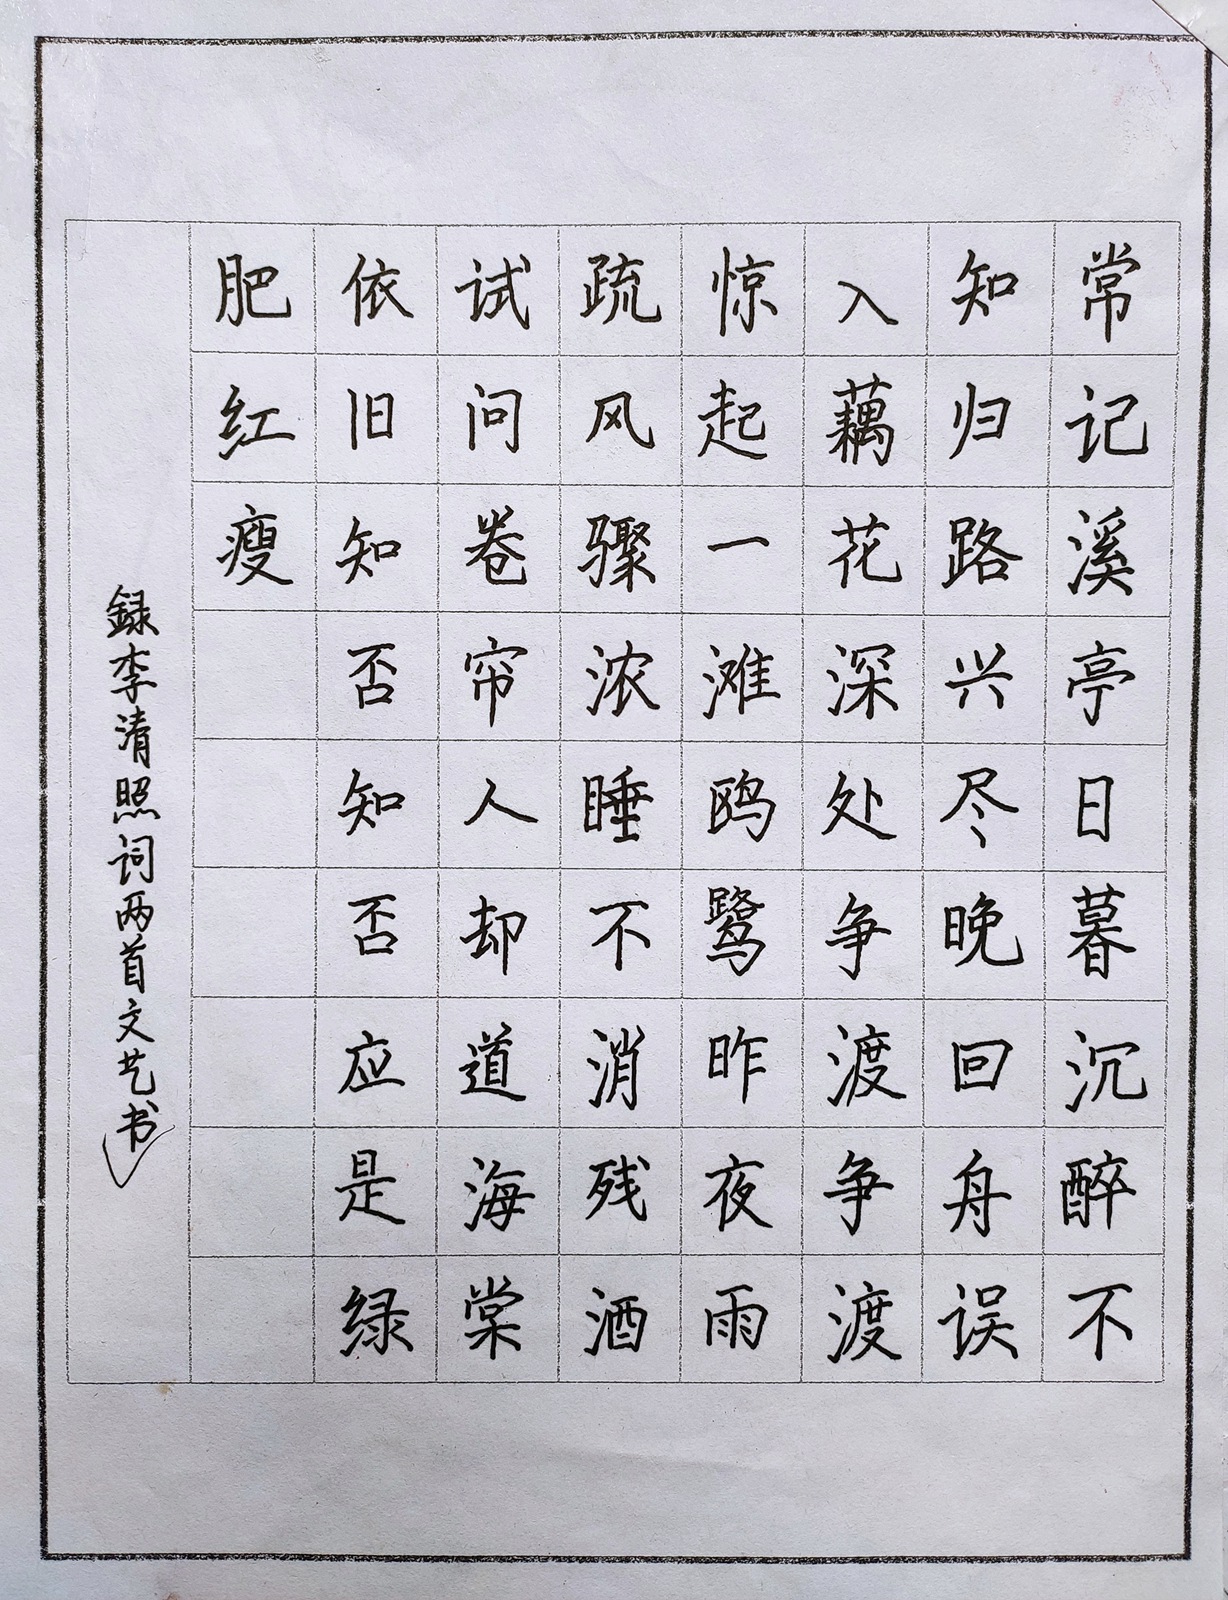 常记溪亭日暮沉醉不
知归路兴尽晚回舟误
入藕花深处争渡争渡
惊起一滩鸥鹭昨夜雨
疏风骤浓睡不消残酒
试问卷帘人却道海棠
依旧知否知否应是绿
肥红瘦
録李清照词两首文艺书